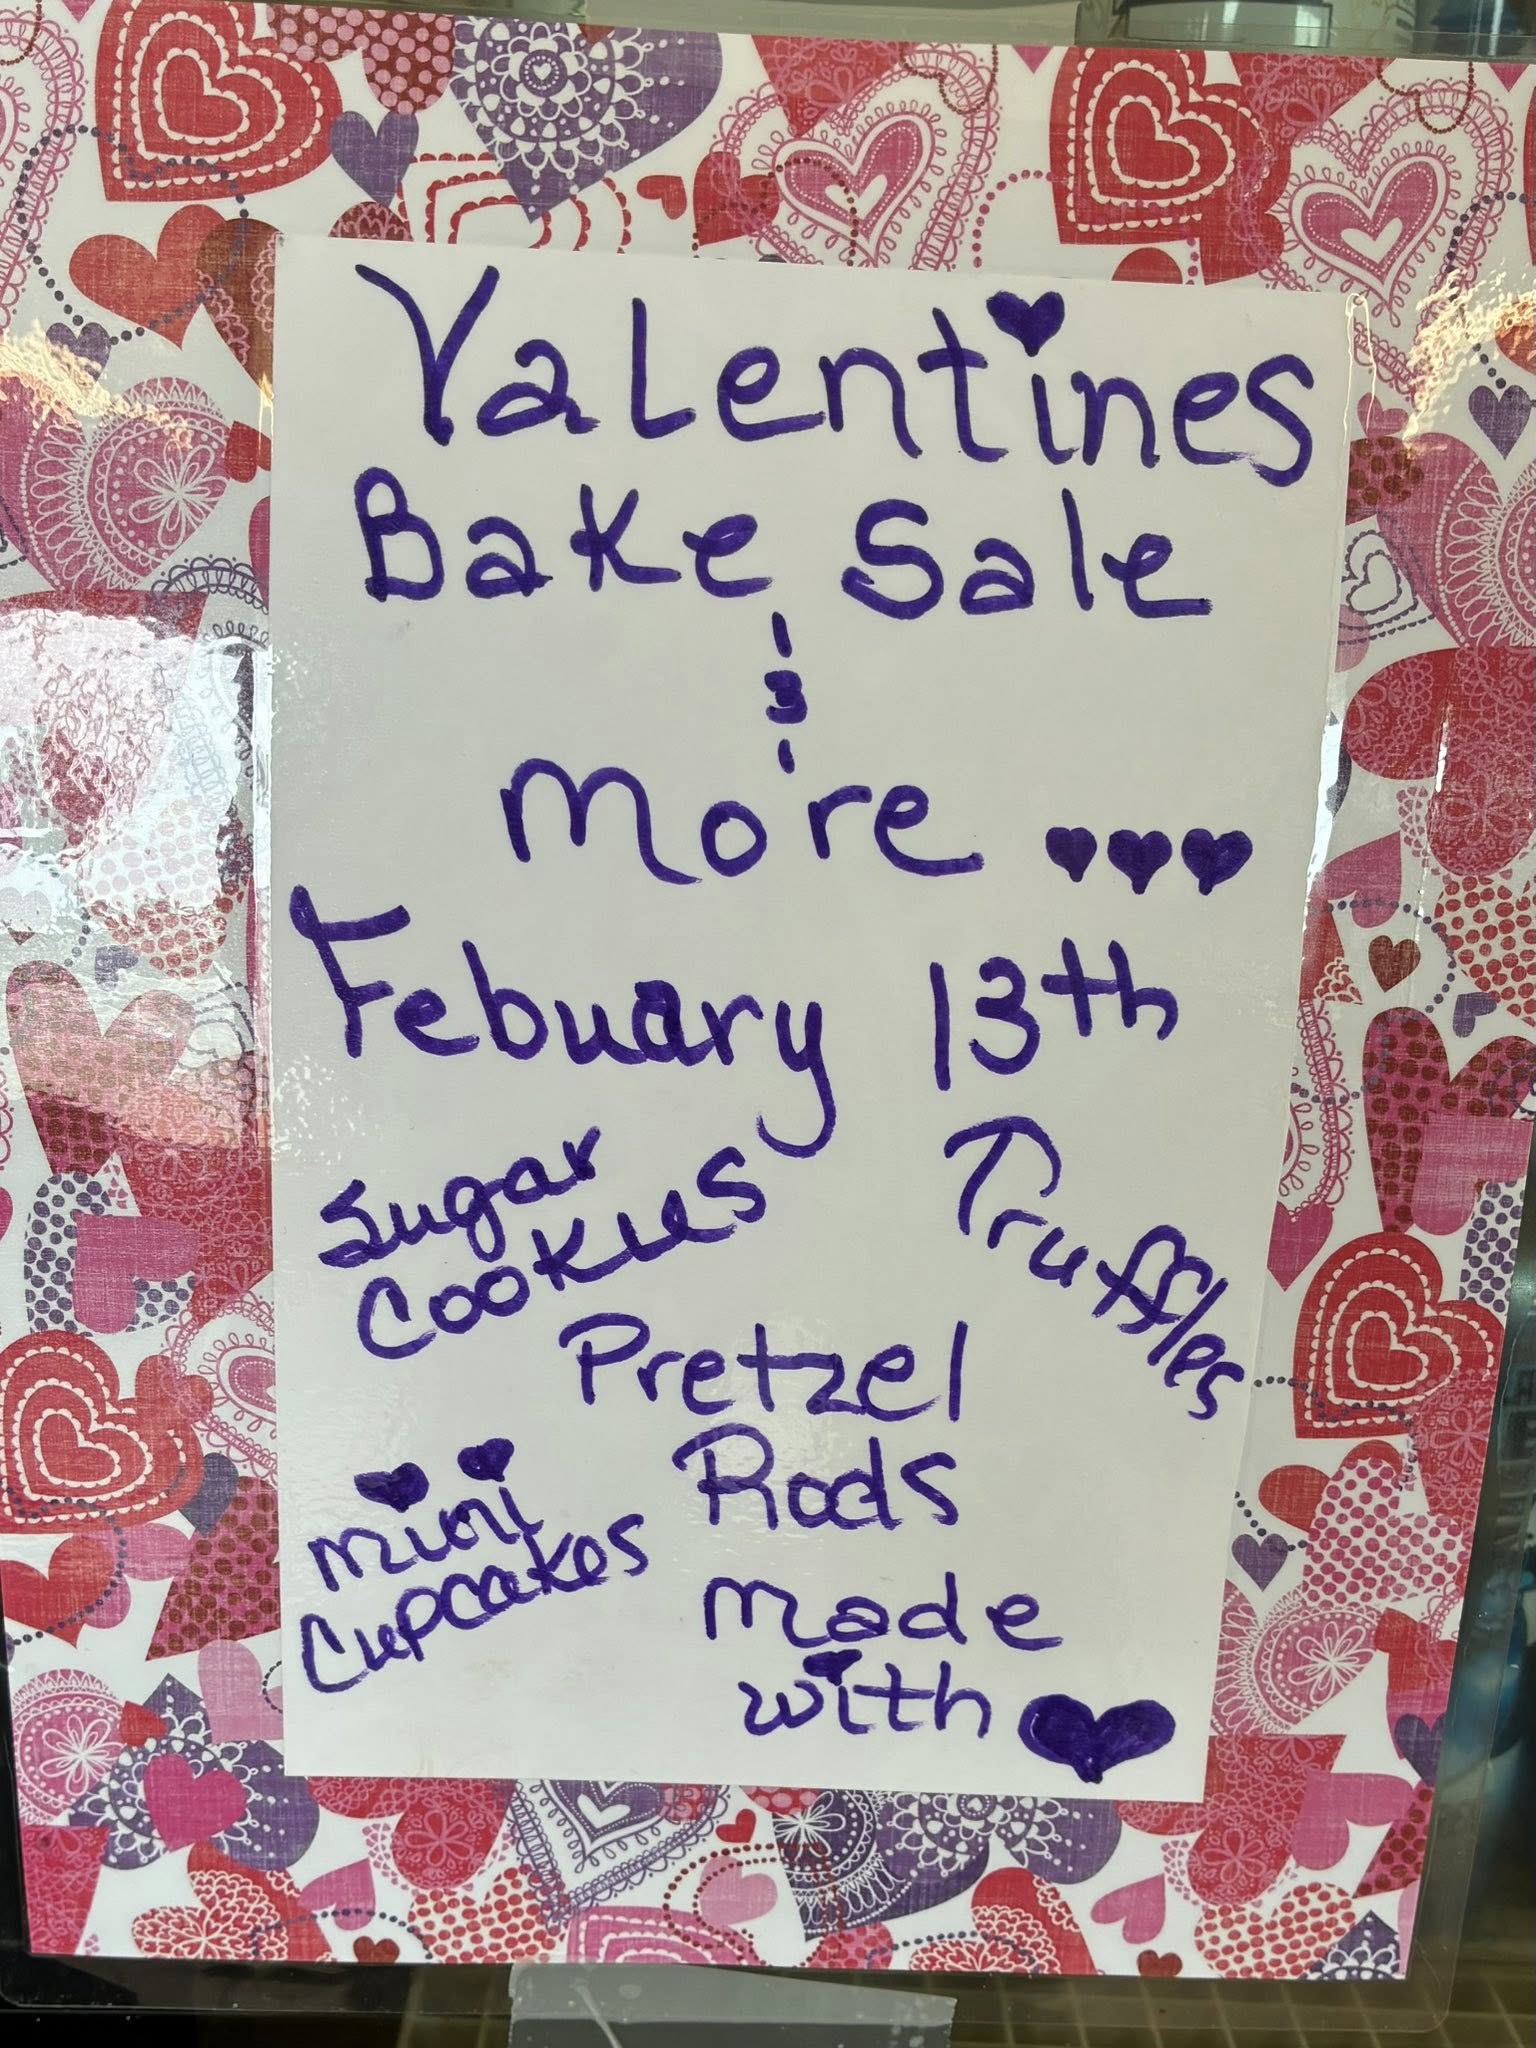 Valentines
Bake Sale
&
More
Febuary 13th
Sugar
Cookies
Truffles
Pretzel
Rods
mini
Cupcakes
made
with